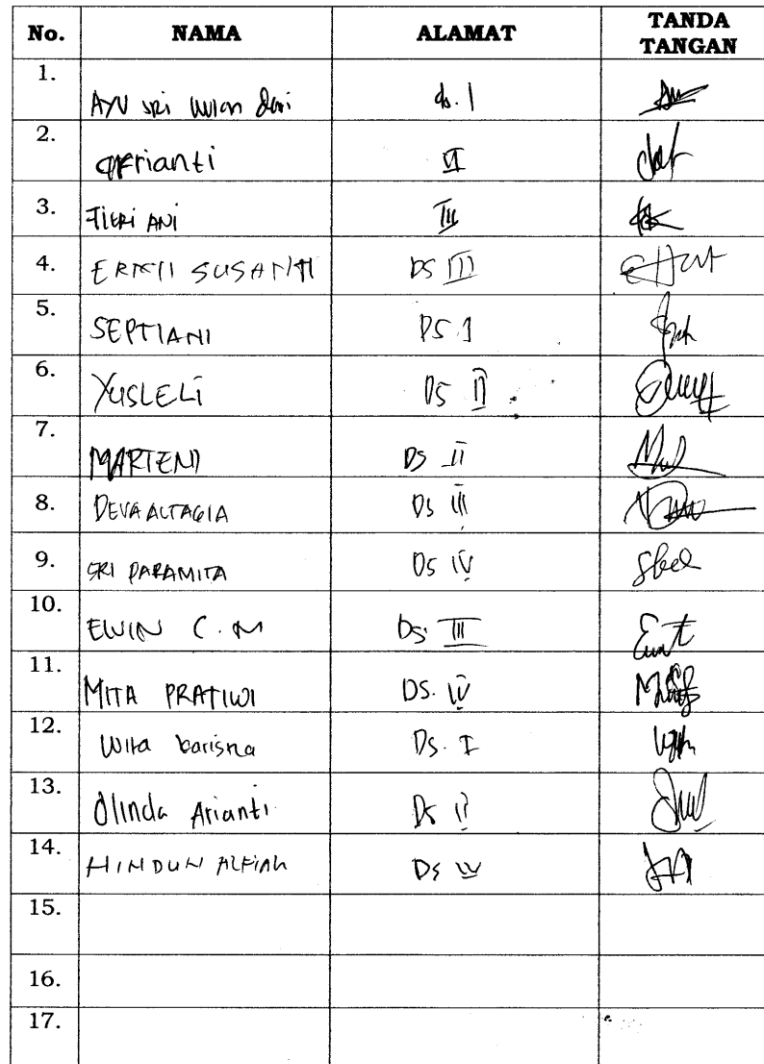 No. NAMA ALAMAT TANDA TANGAN
1. AYU sri wulan dari ds. I
2. Afrianti VI
3. FIERI ANI III
4. SUSANTI DS III
5. SEPTIANI DS I
6. YUSLELI DS II
7. MARTENI DS II
8. DEVA ALTAGIA DS III
9. SRI PARAMITA DS IV
10. ELWIN C. M DS. III
11. MITA PRATIWI DS. IV
12. Wita barisna DS. I
13. Olinda Arianti DS II
14. HINDUN ALFIAH DS IV
15.
16.
17.